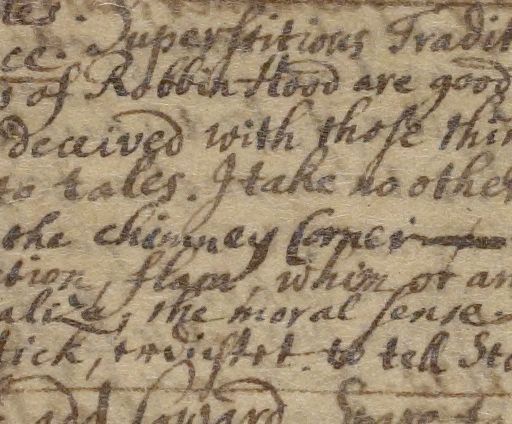 tes.
ce. Superstitious Tradit
s of Robbin Hood are good
deceived with those thin
to tales. I take no other
the chimney Corner
ction, flam, whim or an
alize, the moral sense
tick, to tell Sto
and coward